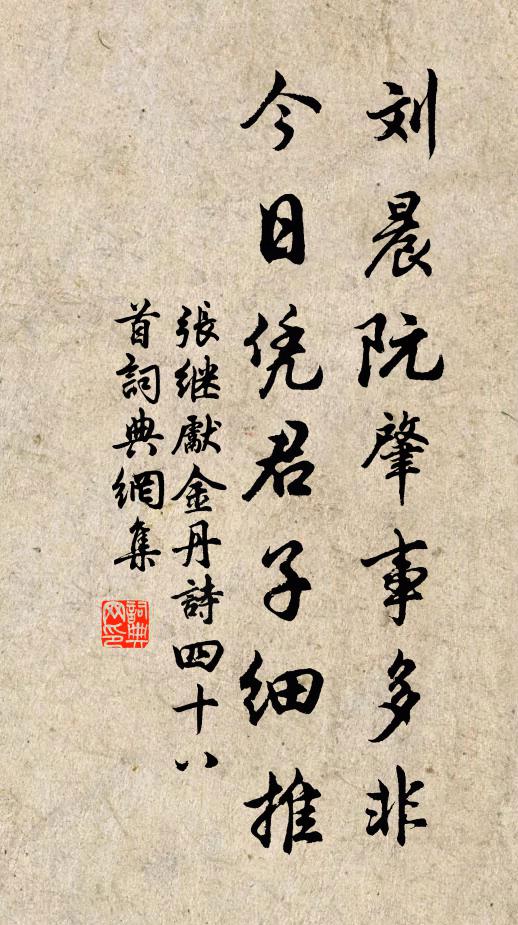 刘晨阮肇事多非
今日凭君子细推
張继獻金丹詩四十八
首詞典網集
詞典网印